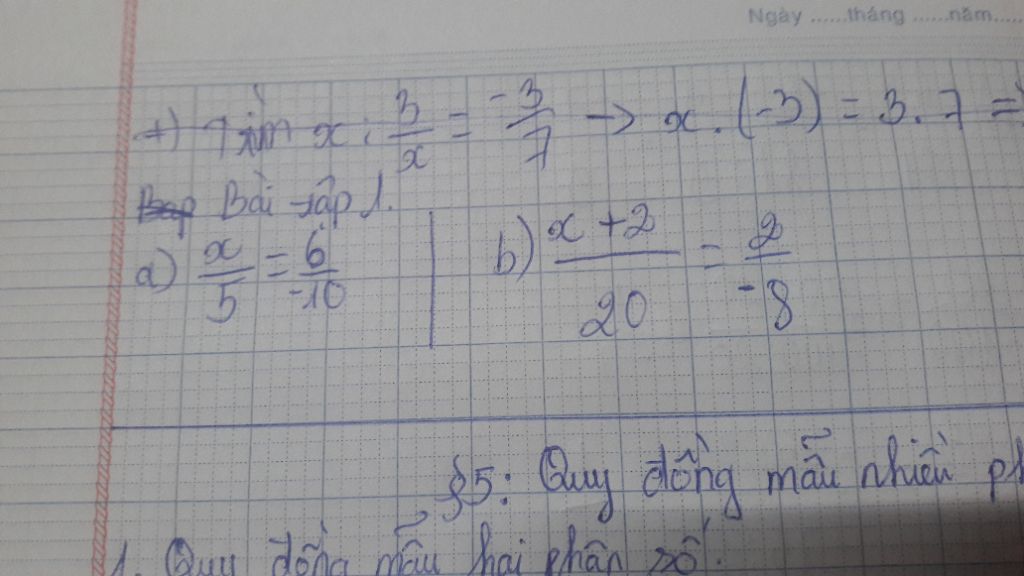 Ngày ......tháng ......năm.....
+) Tìm x : 3/x = -3/7 → x . (-3) = 3 . 7 =>
Bài tập 1.
a) x/5 = 6/-10 b) x + 2/20 = 2/-8
§5: Quy đồng mẫu nhiều ph
1. Quy đồng mẫu hai phân số.